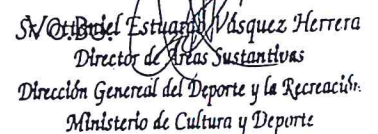 Estuardo Vásquez Herrera
Director de Áreas Sustantivas
Dirección Genereal del Deporte y la Recreación
Ministerio de Cultura y Deporte